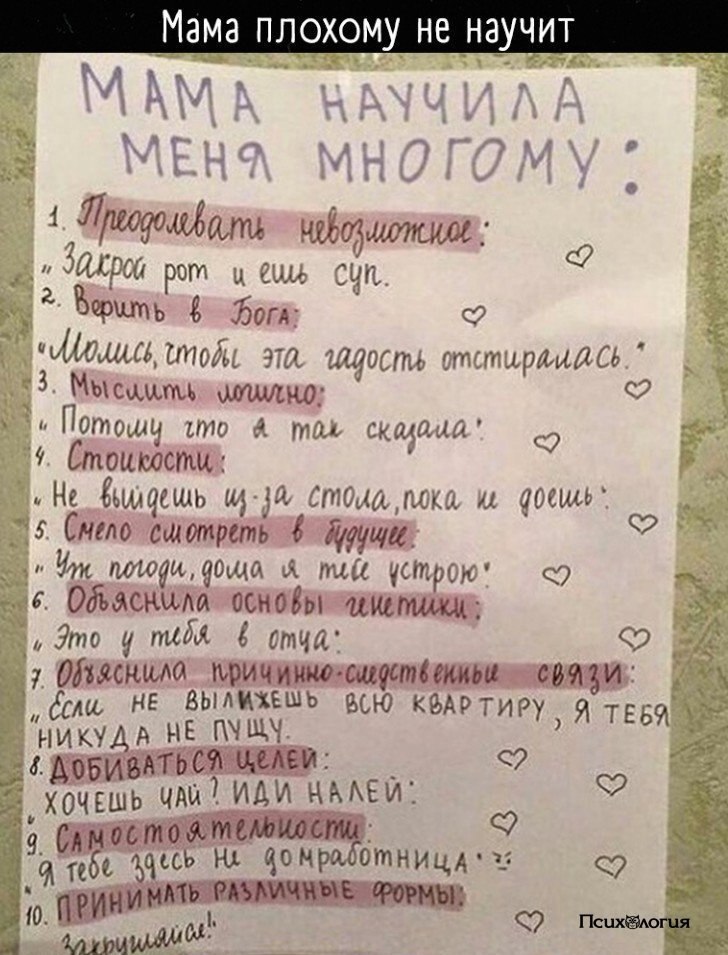 Мама плохому не научит
МАМА НАУЧИЛА
МЕНЯ МНОГОМУ:
1. Преодолевать невозможное:
„Закрой рот и ешь суп.
2. Верить в Бога:
"Молись, чтобы эта гадость отстиралась."
3. Мыслить логично:
"Потому что я так сказала"
4. Стойкости:
„Не выйдешь из-за стола, пока не доешь"
5. Смело смотреть в будущее:
"Уж погоди, дома я тебе устрою"
6. Объяснила основы генетики:
„Это у тебя в отца"
7. Объяснила причинно-следственные связи:
„Если НЕ ВЫЛИЖЕШЬ ВСЮ КВАРТИРУ, Я ТЕБЯ
НИКУДА НЕ ПУЩУ.
8. ДОБИВАТЬСЯ ЦЕЛЕЙ:
„ХОЧЕШЬ ЧАЙ? ИДИ НАЛЕЙ"
9. Самостоятельности:
"Я тебе здесь не домработница"
10. ПРИНИМАТЬ РАЗЛИЧНЫЕ ФОРМЫ:
Закругляйся!"
Психология